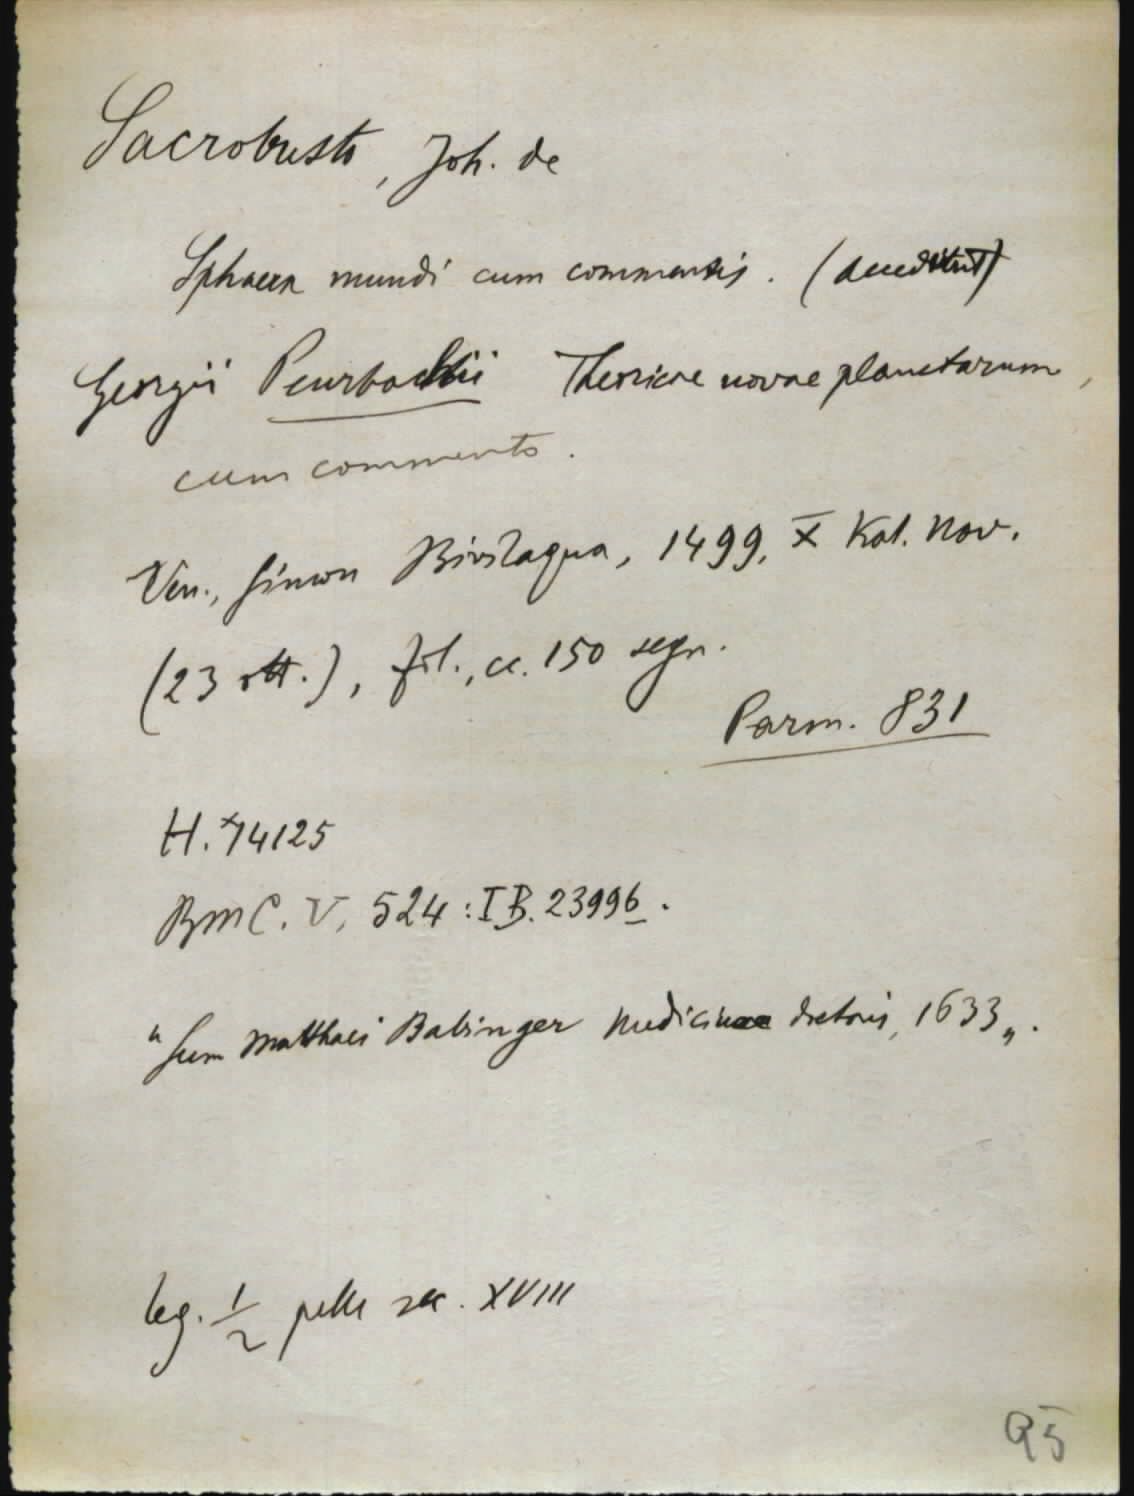 Sacrobusto, Joh. de
Sphaera mundi cum commentis. (Accedunt)
Georgii Peurbachii Theoricae novae planetarum,
cum commento.
Ven., Simon Bivilaqua, 1499, X Kal. Nov.
(23 ott.), fol., cc. 150 segn.
Parm. 831
H. *14125
BMC. V, 524 : IB. 23996.
"Sum Matthaei Babinger Medicinae doctoris, 1633„.
leg. 1/2 pelle sec. XVIII
95